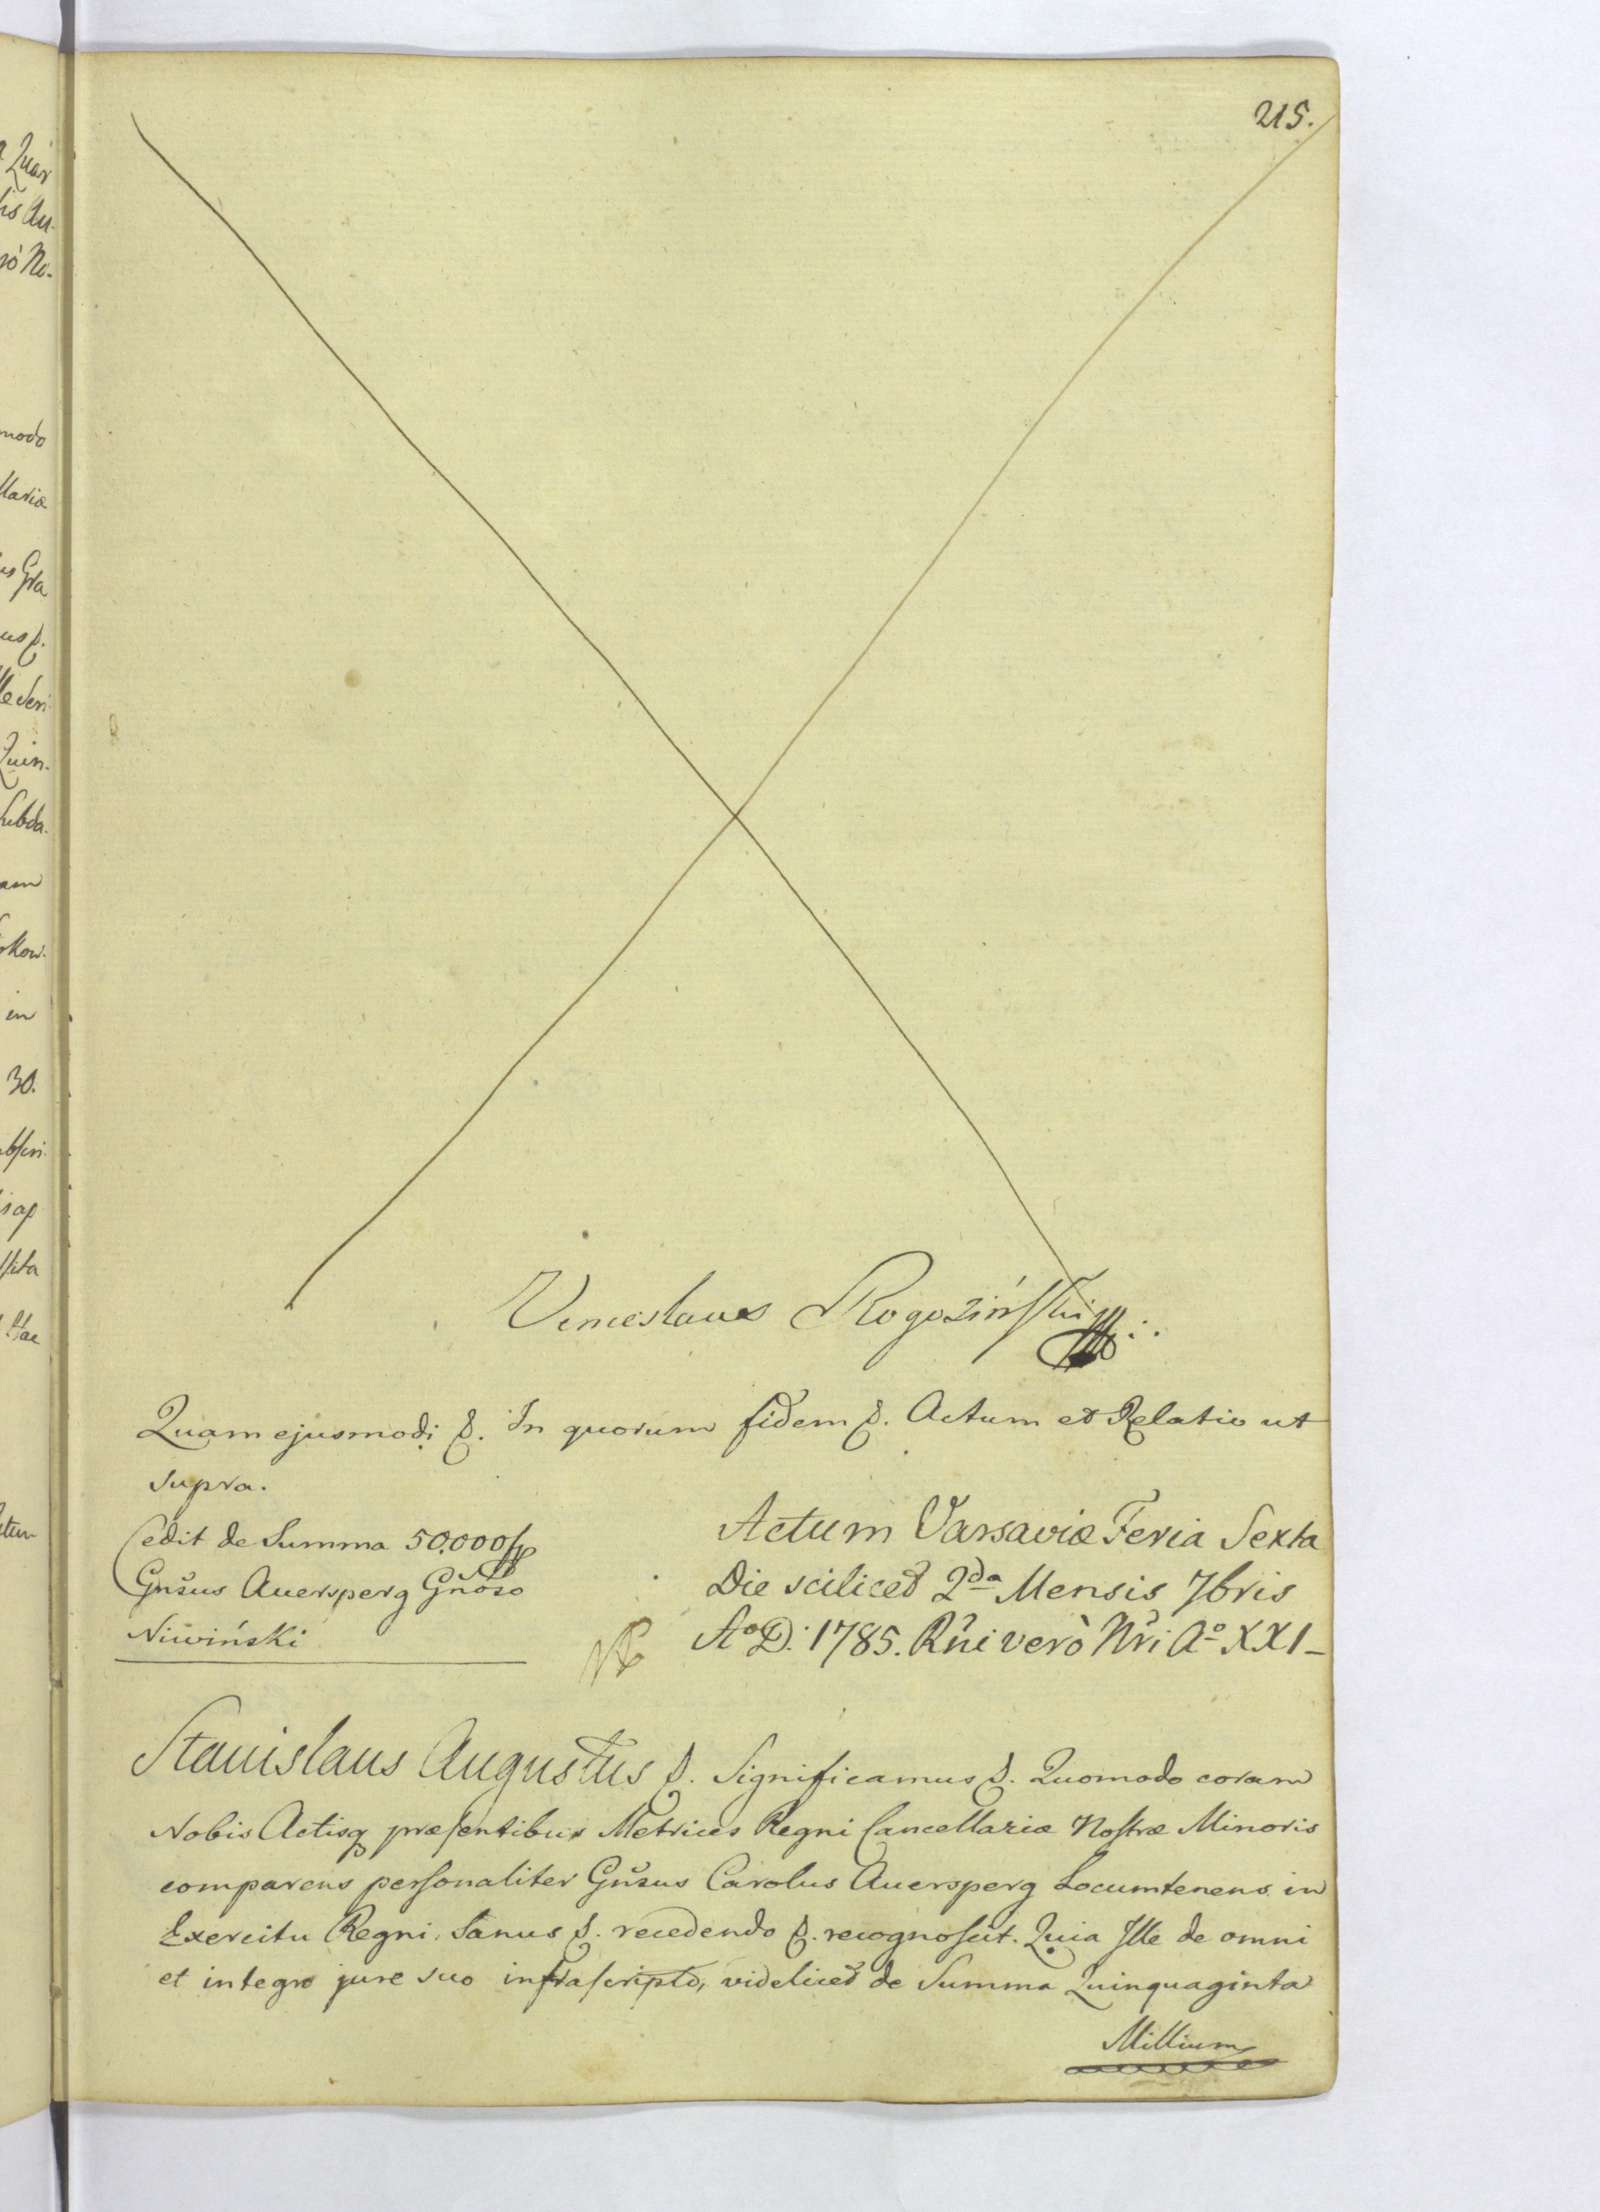 215.
Venceslaus Rogoziński
Quam ejusmodi &. In quorum fidem &. Actum et Relatio ut
supra.
Cedit de Summa 50.000 fp
Gnsus Auersperg Gnoso
Niwiński
Actum Varsaviæ Feria Sexta
Die scilicet 2da Mensis 7bris
Ao D: 1785. Rni verò Nri Ao XXI_
Stanislaus Augustus &. Significamus &. Quomodo coram
Nobis Actisq præsentibus Metrices Regni Cancellariæ Nostræ Minoris
comparens personaliter Gnsus Carolus Auersperg Locumtenens in
Exercitu Regni, Sanus &. recedendo &. recognoscit. Quia Ille de omni
et integro jure suo infrascripto, videlicet de Summa Quinquaginta
Millium